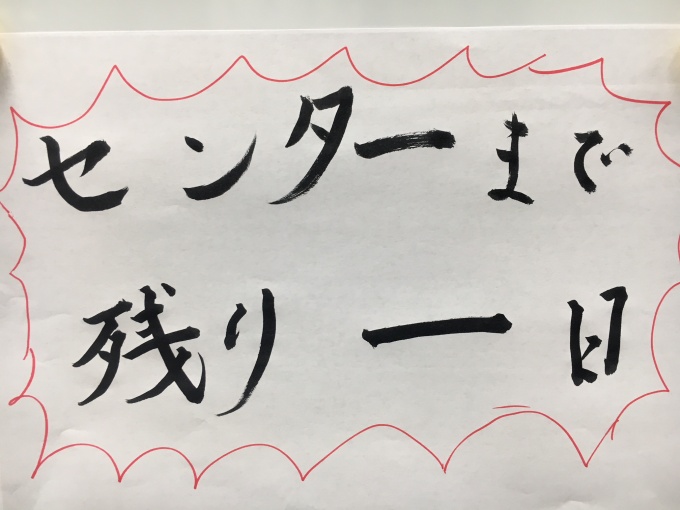 センターまで
残り一日